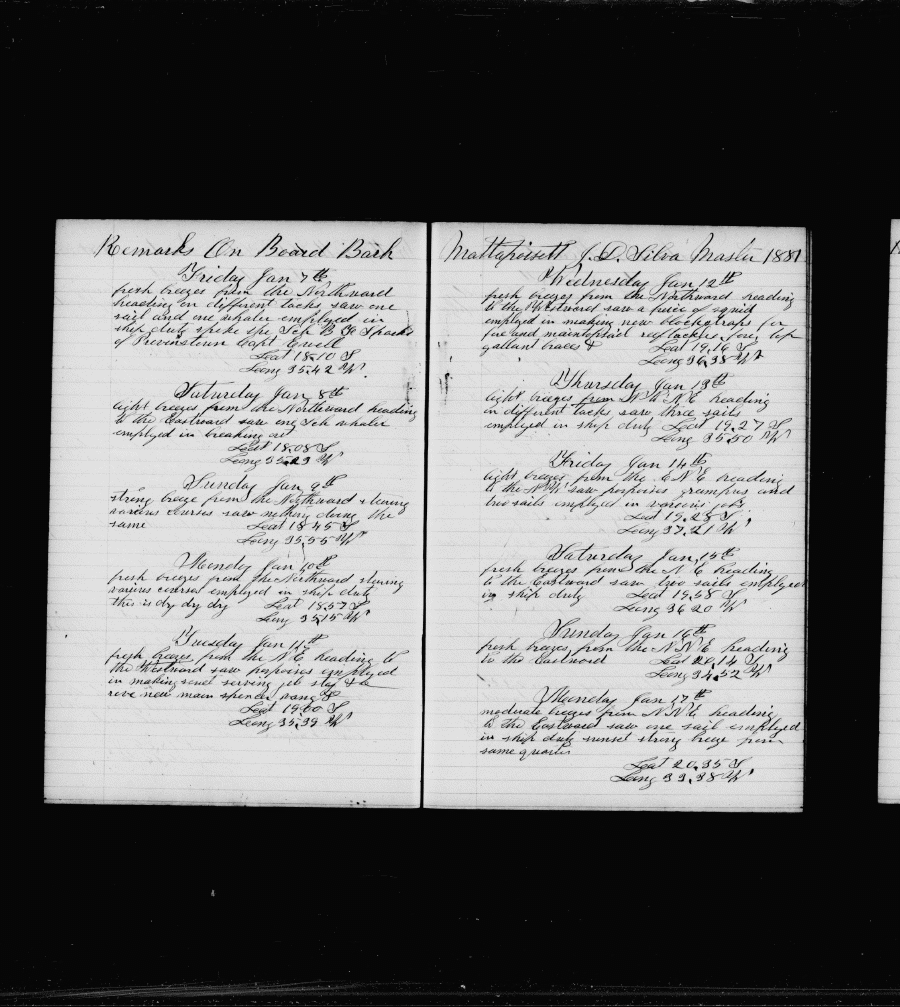 Remarks On Board Bark
Friday Jan 7th
fresh breezes from the Northward
heading on different tacks saw one
sail and one whaler employed in
ship duty spoke the Sch B F Sparks
of Provinstown Capt
Lat 18.10 S
Long 35.42 W
Saturday Jan 8th
light breezes from the Northward heading
to the Eastward saw one Sch whaler
employed in breaking out
Lat 18.08 S
Long 35.23 W
Sunday Jan 9th
strong breeze from the Northward stering
various courses saw nothing doing the
same Lat 18.45 S
Long 35.55 W
Monday Jan 10th
fresh breezes from the Northward stering
various courses employed in ship duty
this is dry dry dry Lat 18.57 S
Long 35.15 W
Tuesday Jan 11th
fresh breezes from the N E heading to
the Westward saw porpoises employed
in making senet serving jib stay &c
rove new main spencer vangs
Lat 19.00 S
Long 35.39 W
Mattapoisett J. D. Silva Master 1881
Wednesday Jan 12th
fresh breezes from the Northward heading
to the Westward saw a piece of squid
employed in making new block straps for
fore and maintopsail reef tackles fore top
gallant braces &
Lat 19.16 S
Long 36.38 W
Thursday Jan 13th
light breezes from N N E heading
on different tacks saw three sails
employed in ship duty Lat 19.27 S
Long 35.50 W
Friday Jan 14th
light breezes from the E N E heading
to the N W saw porpoises grampus and
two sails employed in various jobs
Lat 19.28 S
Long 37.21 W
Saturday Jan 15th
fresh breezes from the N E heading
to the Eastward saw two sails employed
in ship duty Lat 19.58 S
Long 36.20 W
Sunday Jan 16th
fresh breezes from the N N E heading
to the Eastward Lat 20.14 S
Long 34.52 W
Monday Jan 17th
moderate breezes from N N E heading
to the Eastward saw one sail employed
in ship duty sunset strong breeze from
same quarter
Lat 20.35 S
Long 33.38 W